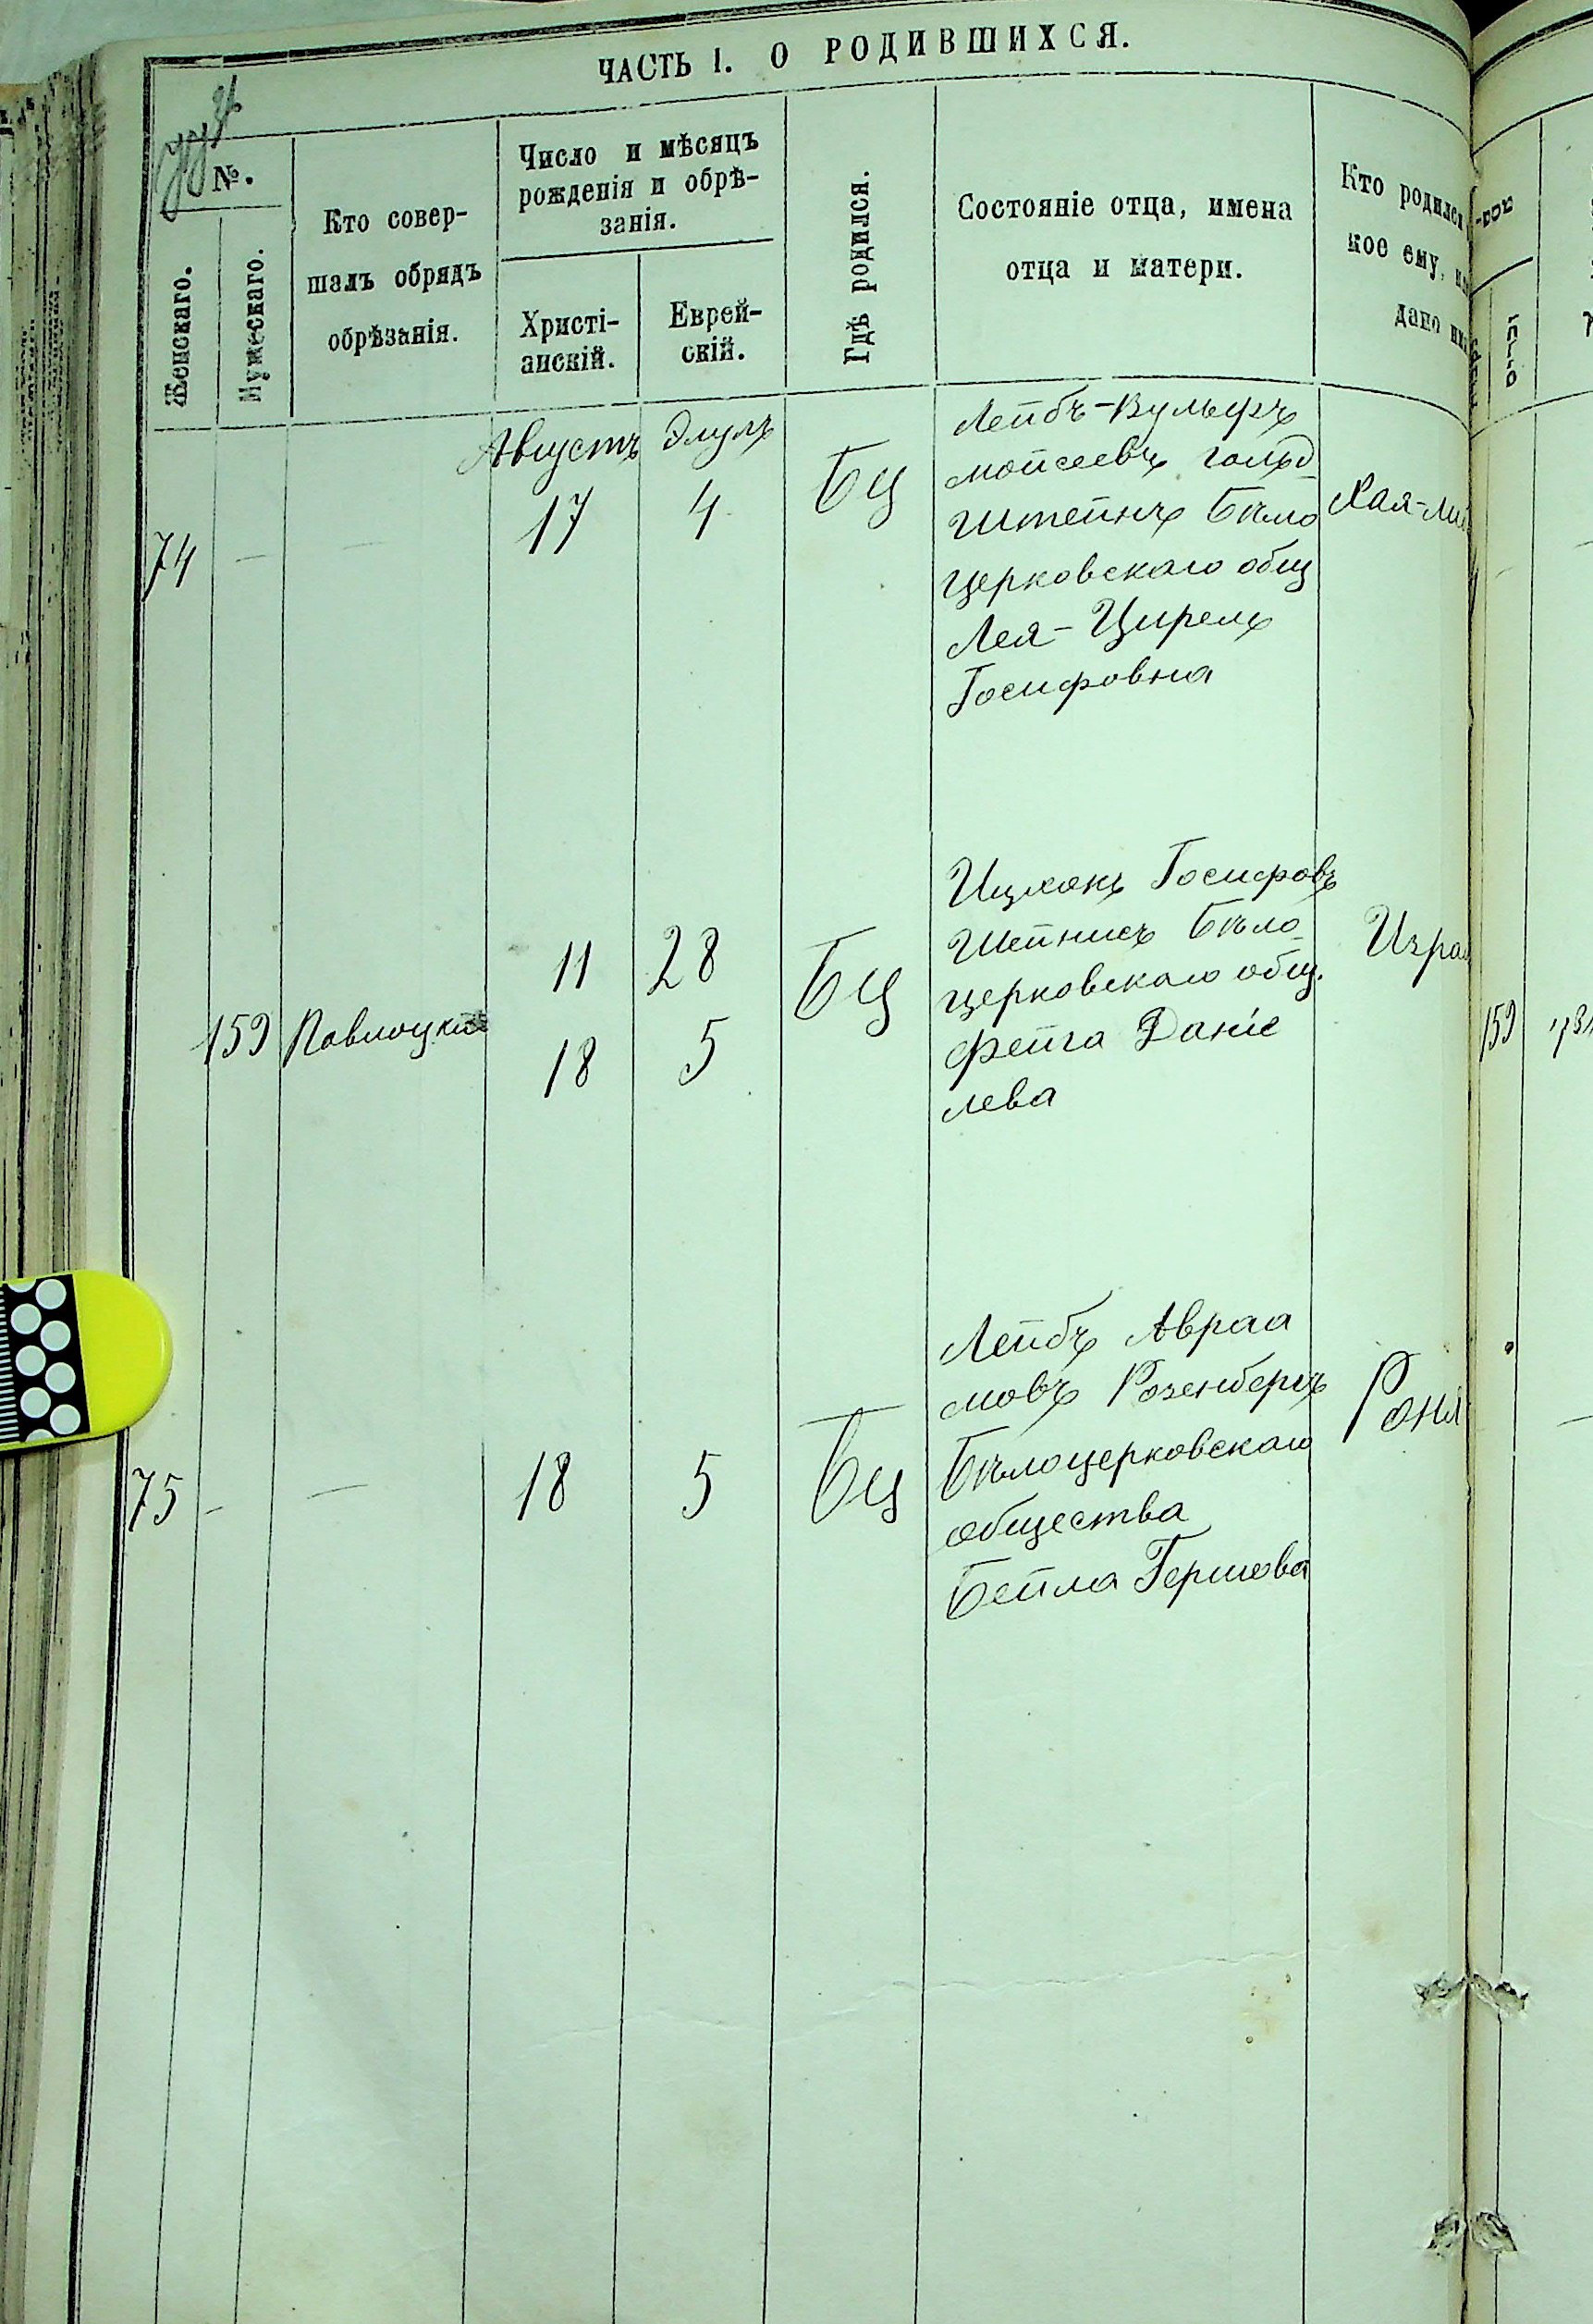 ЧАСТЬ I. О РОДИВШИХСЯ.
№.
Женскаго.
Мужескаго.
Кто совер-
шалъ обрядъ
обрѣзанія.
Число и мѣсяцъ
рожденія и обрѣ-
занія.
Христі-
анскій.
Еврей-
скій.
Гдѣ родился.
Состояніе отца, имена
отца и матери.
Кто родился
кое ему,
дано
74
—
—
Августъ
17
Элулъ
4
БЦ
Лейбъ-Вульфъ
Мойсеевъ Гольд
Штейнъ Бѣло
церковскаго общ
Лея-Цирель
Іосифовна
Хая-
159
Павлоцкій
11
18
28
5
БЦ
Ицхокъ Іосифовъ
Шейнисъ Бѣло
церковскаго общ.
Фейга Даніе
лева
159
75
-
—
18
5
БЦ
Лейбъ Авраа
мовъ Розенбергъ
Бѣлоцерковскаго
общества
Бейла Гершова
Роня